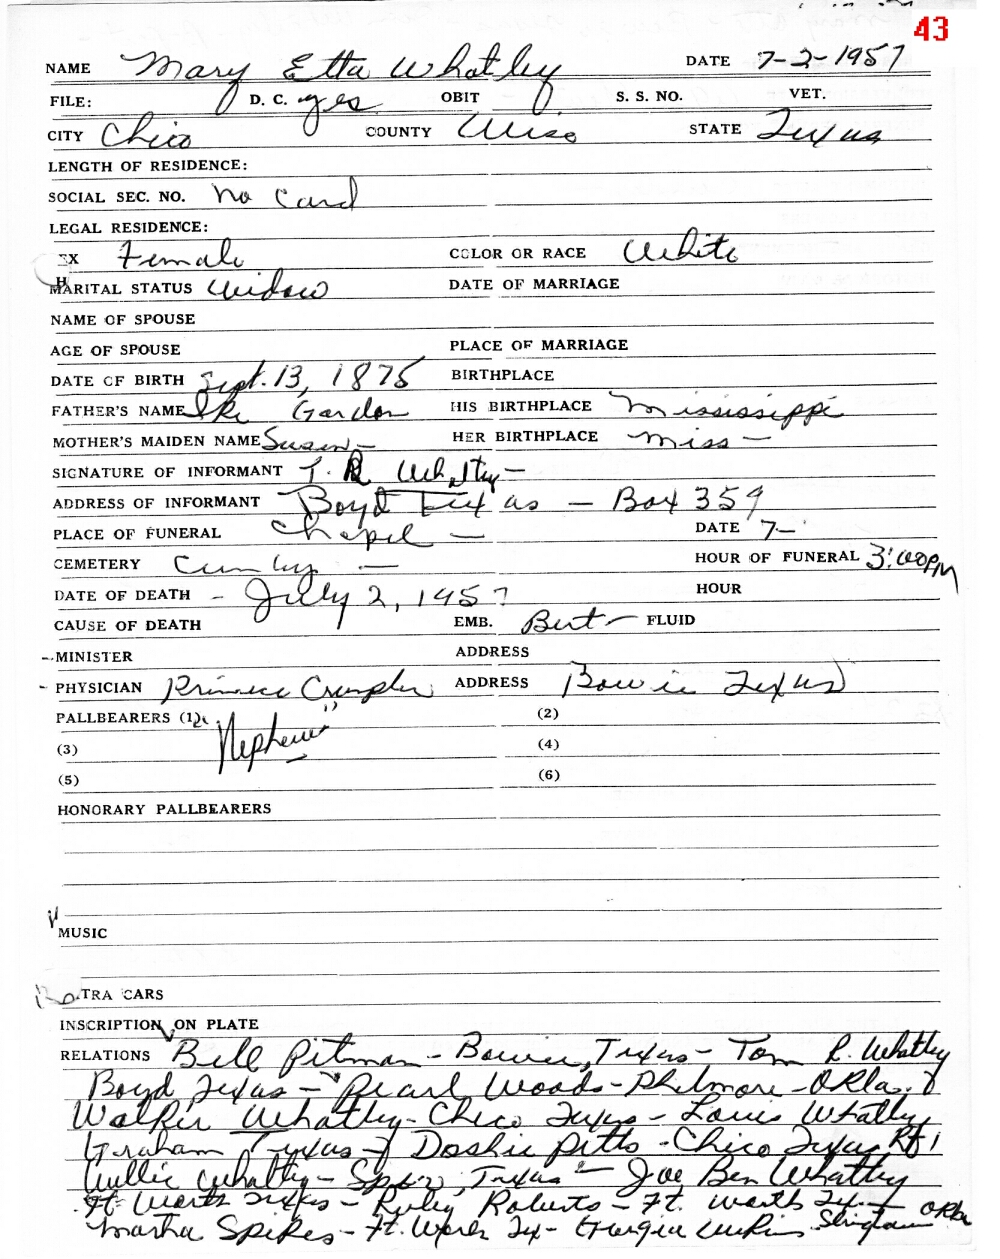 43
NAME Mary Etta Whatley DATE 7-2-1957
FILE: D. C. yes OBIT - S. S. NO. VET.
CITY Chico COUNTY Wise STATE Texas
LENGTH OF RESIDENCE:
SOCIAL SEC. NO. No Card
LEGAL RESIDENCE:
EX Female COLOR OR RACE White
MARITAL STATUS Widow DATE OF MARRIAGE
NAME OF SPOUSE
AGE OF SPOUSE PLACE OF MARRIAGE
DATE OF BIRTH Sept. 13, 1875 BIRTHPLACE
FATHER'S NAME Ike Gordon HIS BIRTHPLACE Mississippi
MOTHER'S MAIDEN NAME Susan - HER BIRTHPLACE Miss -
SIGNATURE OF INFORMANT T. R. Whatley -
ADDRESS OF INFORMANT Boyd Texas - Box 359
PLACE OF FUNERAL Chapel - DATE 7-
CEMETERY - HOUR OF FUNERAL 3:00PM
DATE OF DEATH - July 2, 1957 HOUR
CAUSE OF DEATH EMB. Burt - FLUID
MINISTER ADDRESS
PHYSICIAN Crumpler ADDRESS Bowie Texas
PALLBEARERS (1) Nephews (2)
(3) (4)
(5) (6)
HONORARY PALLBEARERS
MUSIC
TRA CARS
INSCRIPTION ON PLATE
RELATIONS Bill Pitman - Bowie, Texas - Tom R. Whatley
Boyd Texas - Pearl Woods - Philmore - Okla.
Walker Whatley - Chico Texas - Louis Whatley
Graham Texas - Doshie Pitts - Chico Texas Rt 1
Willie Whatley - Texas - Joe Ben Whatley
Ft. Worth Texas - Ruby Roberts - Ft. Worth Tex - Okla
Martha Spikes - Ft. Worth Tex - Georgia